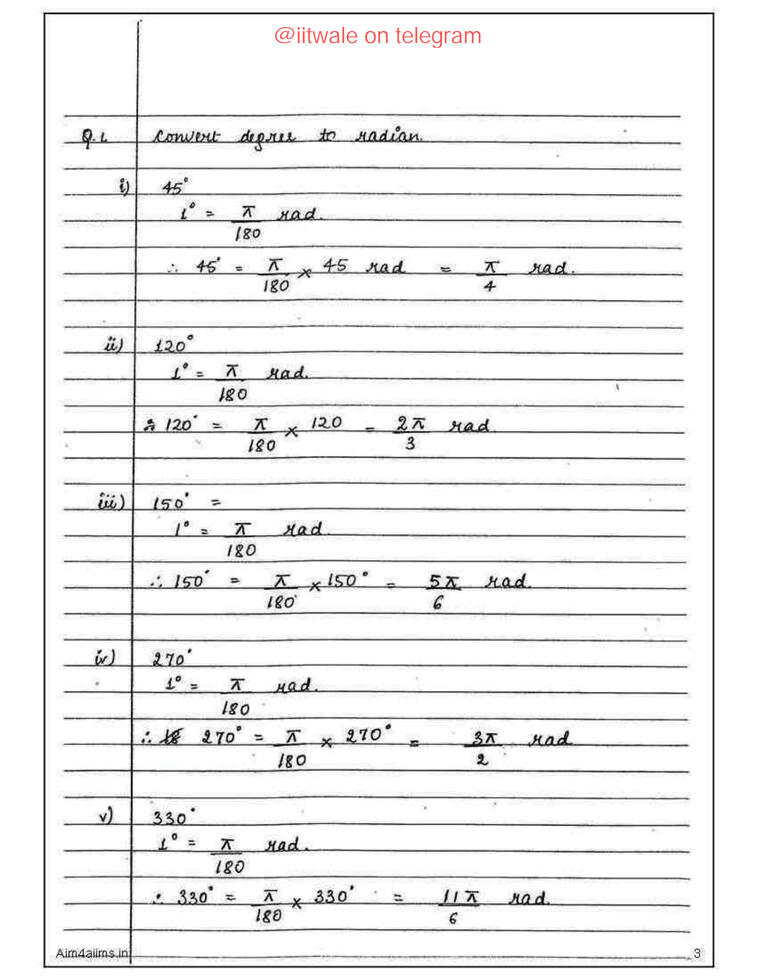 @iitwale on telegram
Q.1. Convert degree to radian.
i) 45°
1° = π/180 rad.
∴ 45° = π/180 × 45 rad = π/4 rad.
ii) 120°
1° = π/180 rad.
∴ 120° = π/180 × 120 = 2π/3 rad
iii) 150° =
1° = π/180 rad.
∴ 150° = π/180 × 150° = 5π/6 rad.
iv) 270°
1° = π/180 rad.
∴ 270° = π/180 × 270° = 3π/2 rad
v) 330°
1° = π/180 rad.
∴ 330° = π/180 × 330° = 11π/6 rad.
Aim4aiims.in 3